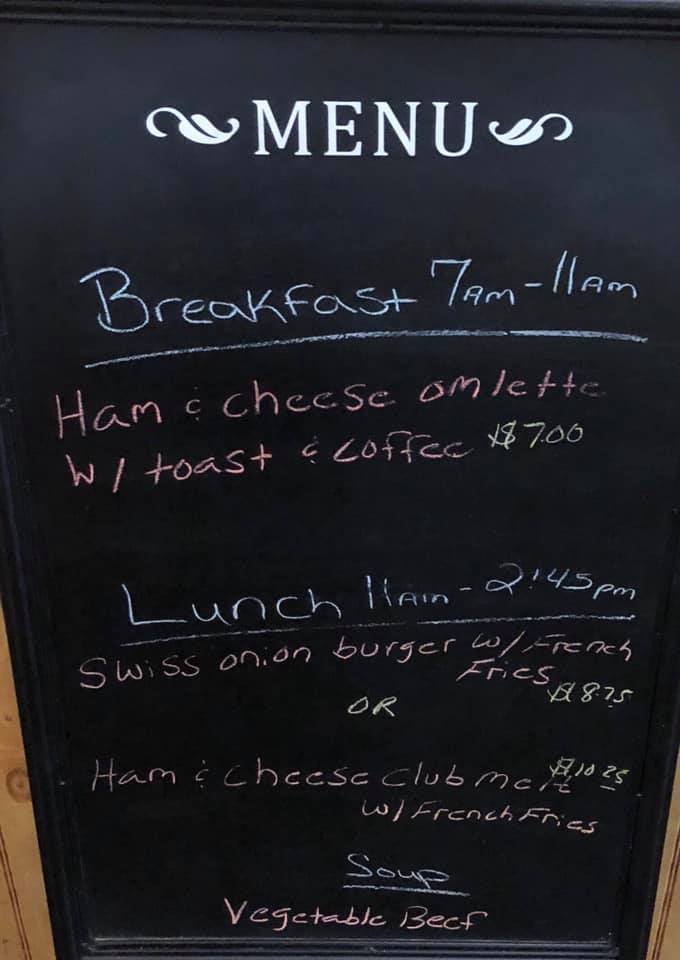 MENU
Breakfast 7am-11am
Ham & cheese omlette
w/ toast & coffee $7.00
Lunch 11am - 2:45pm
Swiss onion burger w/ French
Fries
$8.75
OR
Ham & cheese club melt $10.25
w/ French Fries
Soup
Vegetable Beef